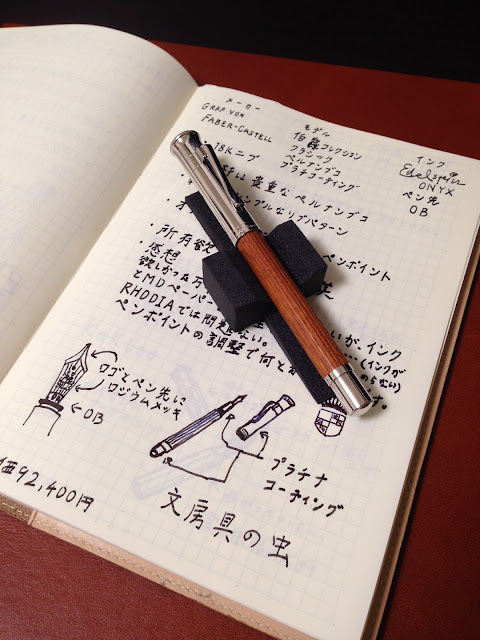 メーカー
GRAF VON
FABER-CASTELL
モデル
伯爵コレクション
クラシック
ペルナンブコ
プラチナコーティング
インク
Edelstein
ONYX
ペン先
OB
18Kニブ
は貴重なペルナンブコ
ンプルなリブパターン
・所有欲 ペンポイント
・感想
欲しかった万 いが、インク
とMDペーパー (インクが
RHODIAでは問題ない。 のらない)
ペンポイントの調整で何と
ロゴとペン先に
ロジウムメッキ
OB
プラチナ
コーティング
価92,400円
文房具の虫